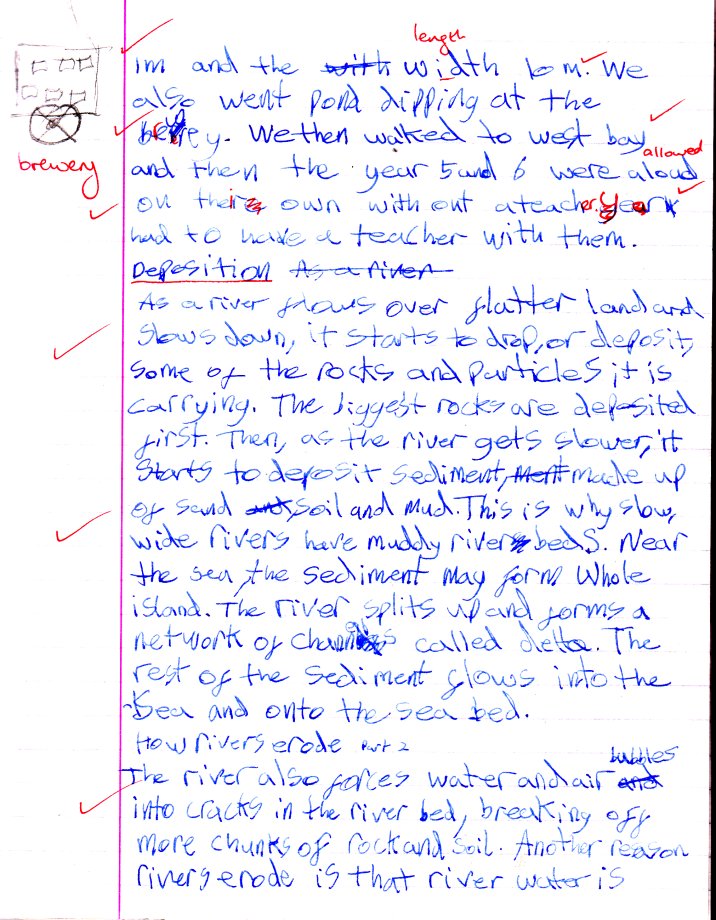 length
1m and the with width 10 m. We
also went pond dipping at the
brewery
We then walked to west bay
allowed
and then the year 5 and 6 were aloud
on their own with out a teacher. year
had to have a teacher with them.
Deposition As a river
As a river flows over flatter land and
slows down, it starts to drop, or deposit,
some of the rocks and particles it is
carrying. The biggest rocks are deposited
first. Then, as the river gets slower, it
starts to deposit sediment, ment made up
of sand and, soil and mud. This is why slow,
wide rivers have muddy river beds. Near
the sea, the sediment may form whole
island. The river splits up and forms a
network of channels called delta. The
rest of the sediment flows into the
sea and onto the sea bed.
How rivers erode Part 2
bubbles
The river also forces water and air and
into cracks in the river bed, breaking off
more chunks of rock and soil. Another reason
rivers erode is that river water is